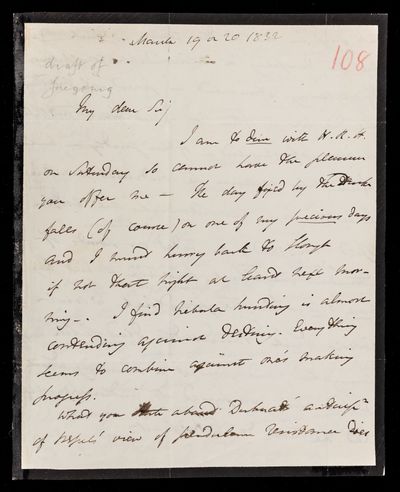 March 19 or 20 1832
108
draft of
foregoing
My dear Sir
I am to dine with H.R.H.
on Saturday so cannot have the pleasure
you offer me — The day fixed by the Duke
falls (of course) on one of my precious days
and I must hurry back to Slough
if not that night at least next mor-
ning —. I find Nebula hunting is almost
contending against destiny. Everything
seems to combine against one's making
progress.
What you state about Dubuat's anticipn
of Bessel's view of pendulum resistance does